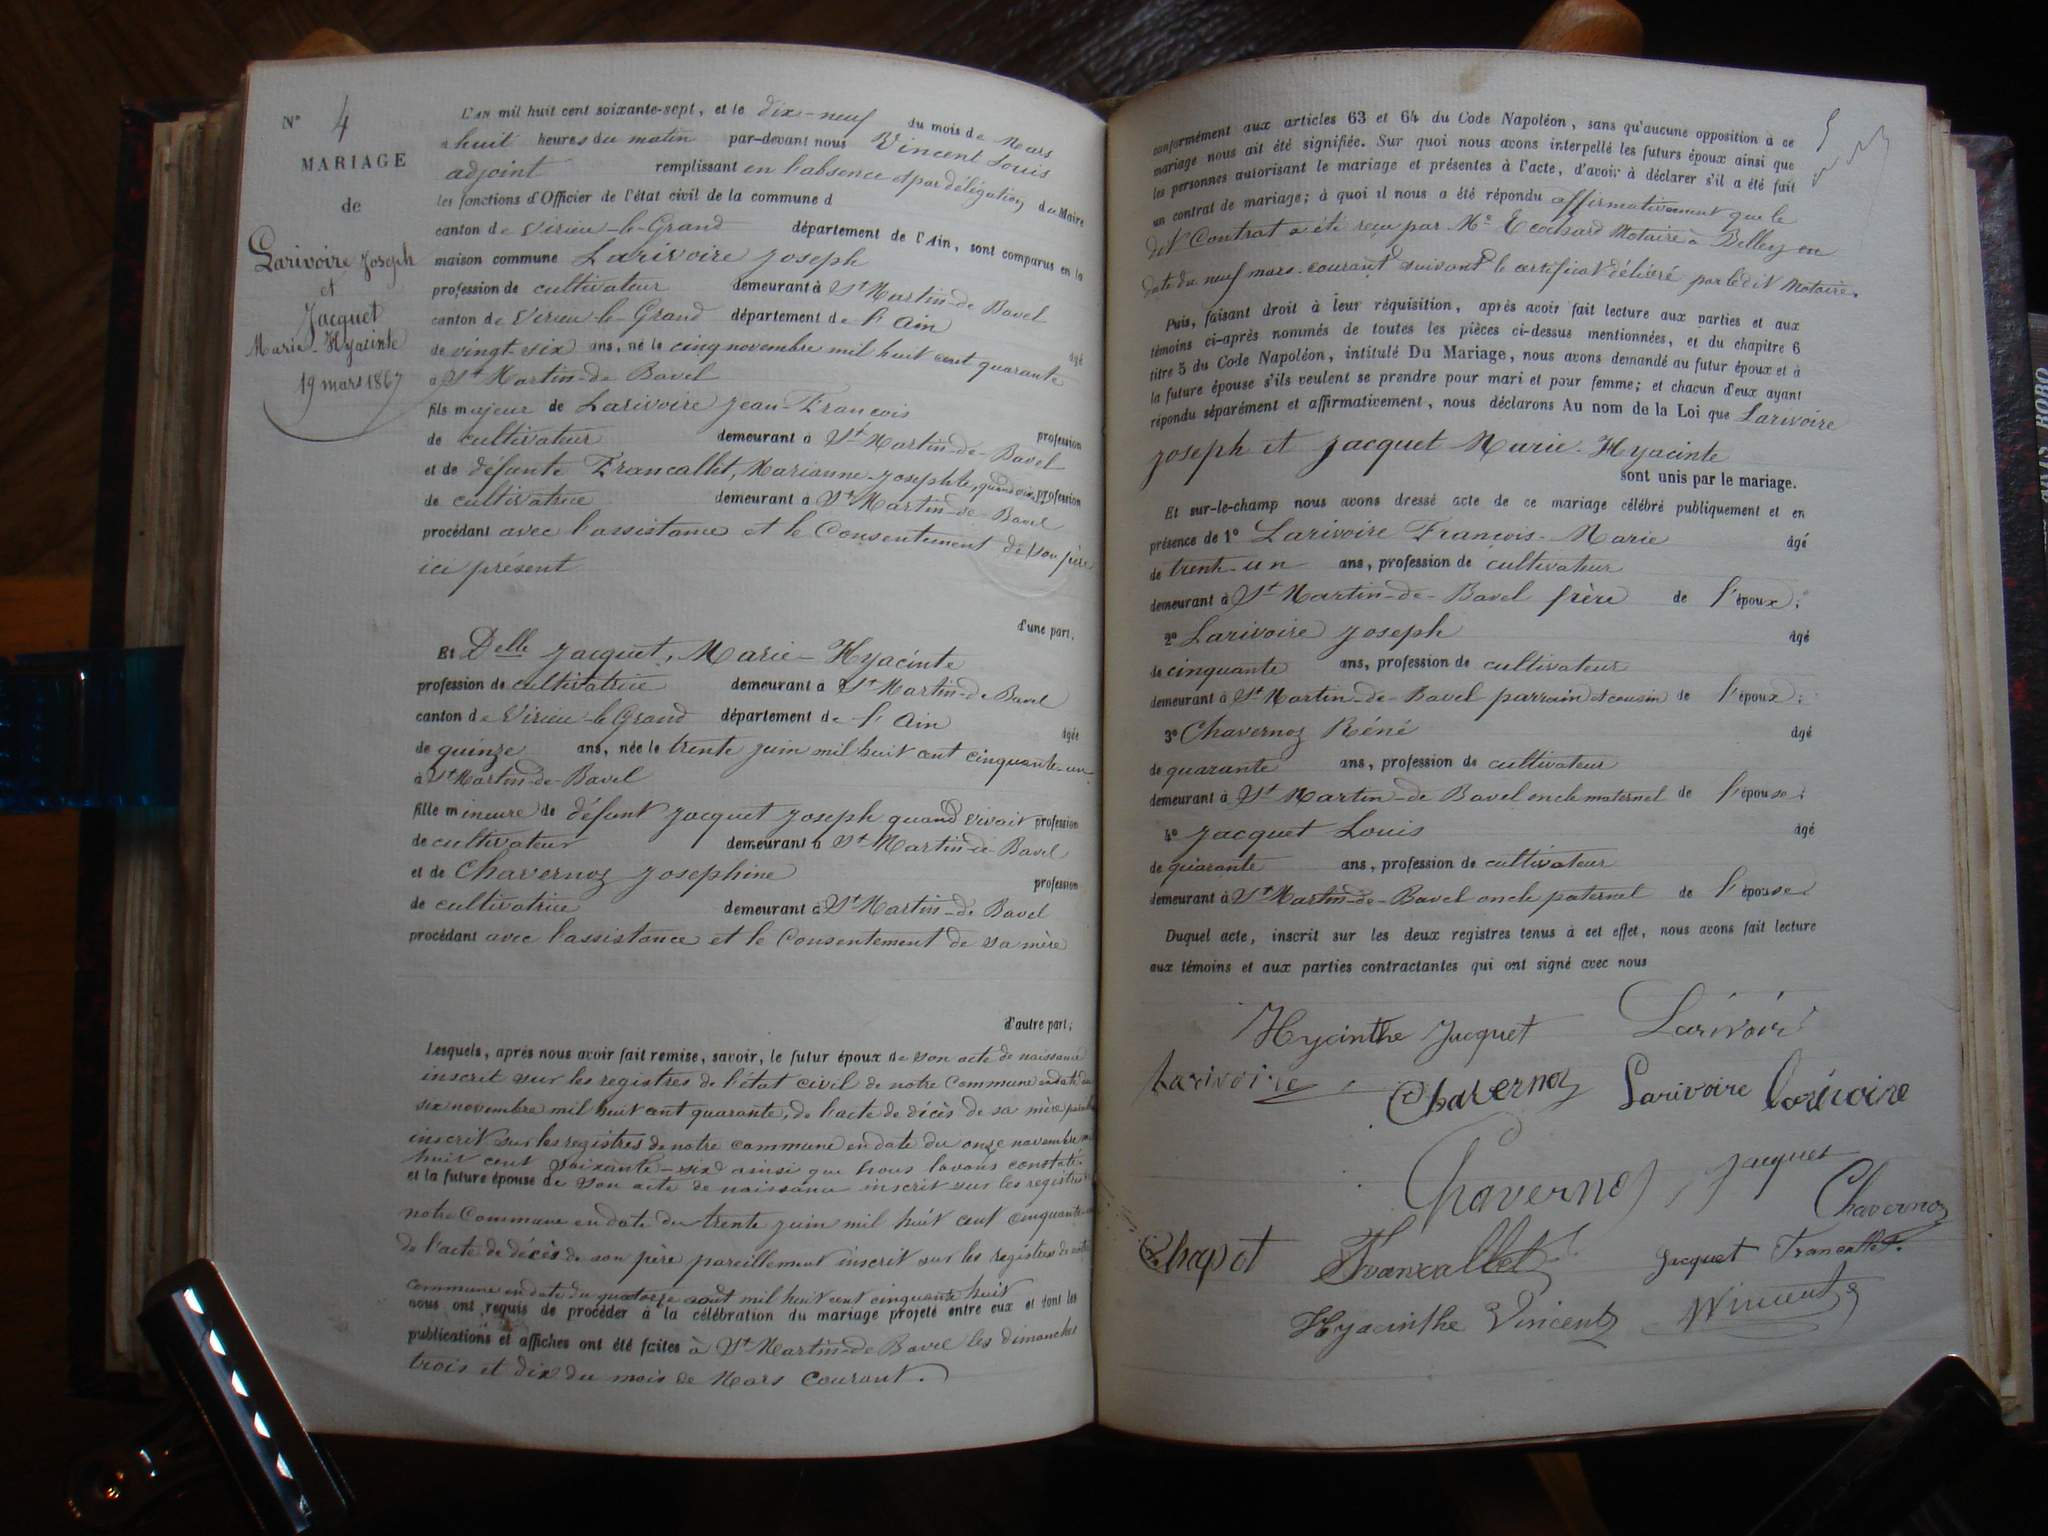 N° 4
MARIAGE
de
Larivoire Joseph
et
Jacquet
Marie-Hyacinte
19 mars 1867
L'AN mil huit cent soixante-sept, et le dix-neuf du mois de Mars
à huit heures du matin par-devant nous Vincent Louis
adjoint remplissant en l'absence et par délégation du Maire
les fonctions d'Officier de l'état civil de la commune d
canton de Virieu-le-Grand département de l'Ain, sont comparus en la
maison commune Larivoire Joseph
profession de cultivateur demeurant à St Martin-de Bavel
canton de Virieu-le-Grand département de l'Ain âgé
de vingt-six ans, né le cinq novembre mil huit cent quarante
à St Martin-de Bavel
fils majeur de Larivoire Jean-François profession
de cultivateur demeurant à St Martin-de-Bavel
et de défunte Francallet, Marianne-Josephte, profession
de cultivatrice demeurant à St Martin-de-Bavel
procédant avec l'assistance et le Consentement de son père
ici présent
d'une part.
Et Delle Jacquet, Marie-Hyacinte
profession de cultivatrice demeurant à St Martin-de Bavel
canton de Virieu-le Grand département de l'Ain âgée
de quinze ans, née le trente juin mil huit cent cinquante-un
à St Martin-de-Bavel
fille mineure de défunt Jacquet Joseph quand vivait profession
de cultivateur demeurant à St Martin-de-Bavel
et de Chavernoz Josephine profession
de cultivatrice demeurant à St Martin-de Bavel
procédant avec l'assistance et le Consentement de sa mère
d'autre part;
Lesquels, après nous avoir fait remise, savoir, le futur époux de son acte de naissance
inscrit sur les registres de l'état civil de notre Commune en date du
six novembre mil huit cent quarante, de l'acte de décès de sa mère
inscrit sur les registres de notre commune en date du onze novembre
huit cent soixante-six ainsi que nous l'avons constaté.
et la future épouse de son acte de naissance inscrit sur les registres
notre Commune en date du trente juin mil huit cent cinquante
de l'acte de décès de son père pareillement inscrit sur les registres de notre
commune en date du quatorze aout mil huit cent cinquante huit
nous ont requis de procéder à la célébration du mariage projeté entre eux et dont les
publications et affiches ont été faites à St Martin-de Bavel les dimanches
trois et dix du mois de Mars courant.
conformément aux articles 63 et 64 du Code Napoléon, sans qu'aucune opposition à ce
mariage nous ait été signifiée. Sur quoi nous avons interpellé les futurs époux ainsi que
les personnes autorisant le mariage et présentes à l'acte, d'avoir à déclarer s'il a été fait
un contrat de mariage; à quoi il nous a été répondu affirmativement que le
dit Contrat a été reçu par Me Notaire à Belley en
date du neuf mars courant suivant le certificat délivré par le dit Notaire.
Puis, faisant droit à leur réquisition, après avoir fait lecture aux parties et aux
témoins ci-après nommés de toutes les pièces ci-dessus mentionnées, et du chapitre 6
titre 5 du Code Napoléon, intitulé Du Mariage, nous avons demandé au futur époux et à
la future épouse s'ils veulent se prendre pour mari et pour femme; et chacun d'eux ayant
répondu séparément et affirmativement, nous déclarons Au nom de la Loi que Larivoire
Joseph et Jacquet Marie-Hyacinte
sont unis par le mariage.
Et sur-le-champ nous avons dressé acte de ce mariage célébré publiquement et en
présence de 1° Larivoire François-Marie âgé
de trente-un ans, profession de cultivateur
demeurant à St Martin-de-Bavel frère de l'époux;
2° Larivoire Joseph âgé
de cinquante ans, profession de cultivateur
demeurant à St Martin-de-Bavel parrain et cousin de l'époux;
3° Chavernoz Réné âgé
de quarante ans, profession de cultivateur
demeurant à St Martin-de Bavel oncle maternel de l'épouse;
4° Jacquet Louis âgé
de quarante ans, profession de cultivateur
demeurant à St Martin-de-Bavel oncle paternel de l'épouse
Duquel acte, inscrit sur les deux registres tenus à cet effet, nous avons fait lecture
aux témoins et aux parties contractantes qui ont signé avec nous
Hyacinthe Jacquet Larivoir
Larivoire Chavernoz Larivoire Larivoire
Chavernoz Jacquet
Chavernoz
Chapot Francallet Jacquet Francallet
Hyacinthe Vincent Vincent